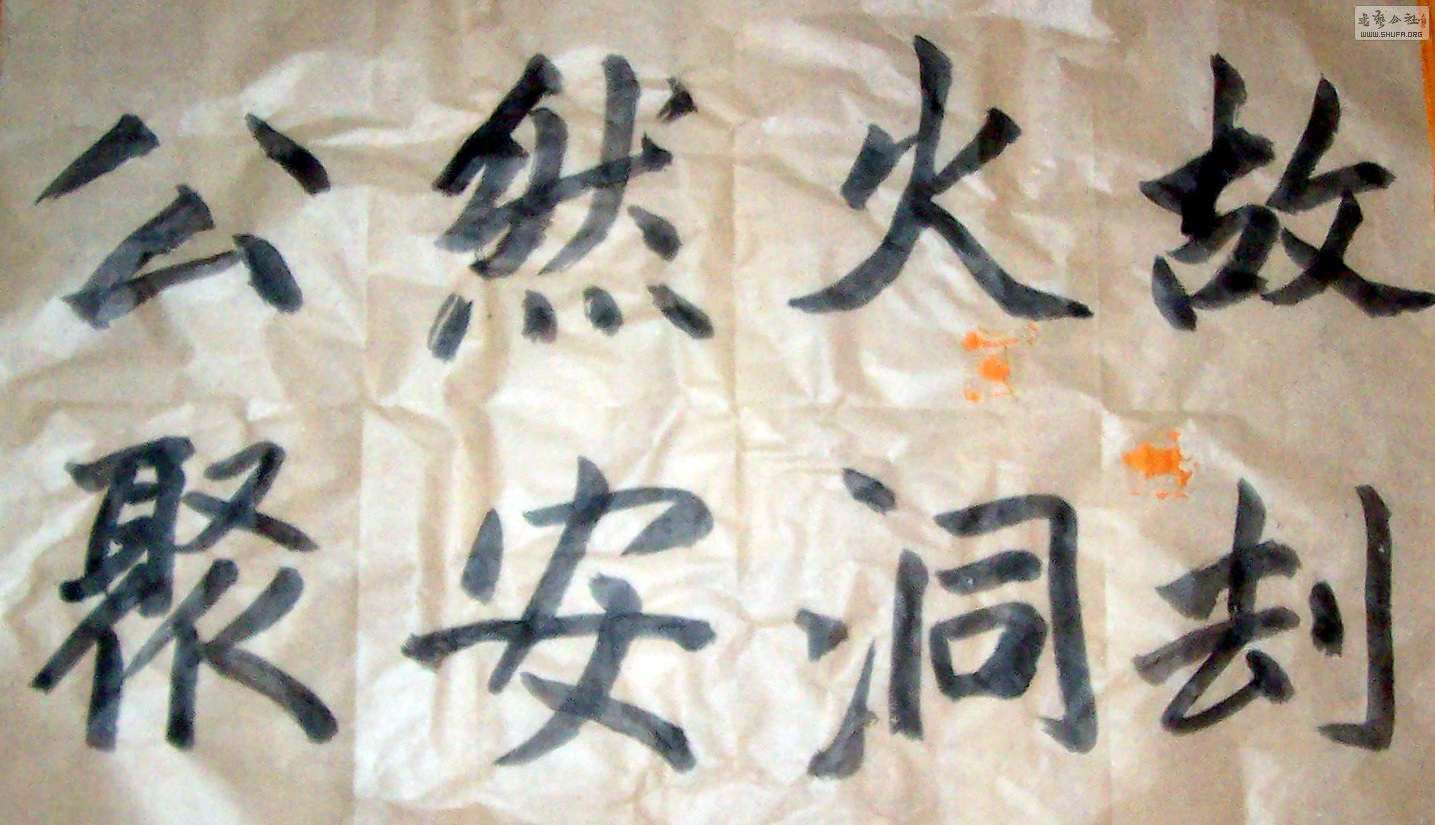 故刦
火洞
然安
公聚
書藝公社
WWW.SHUFA.ORG